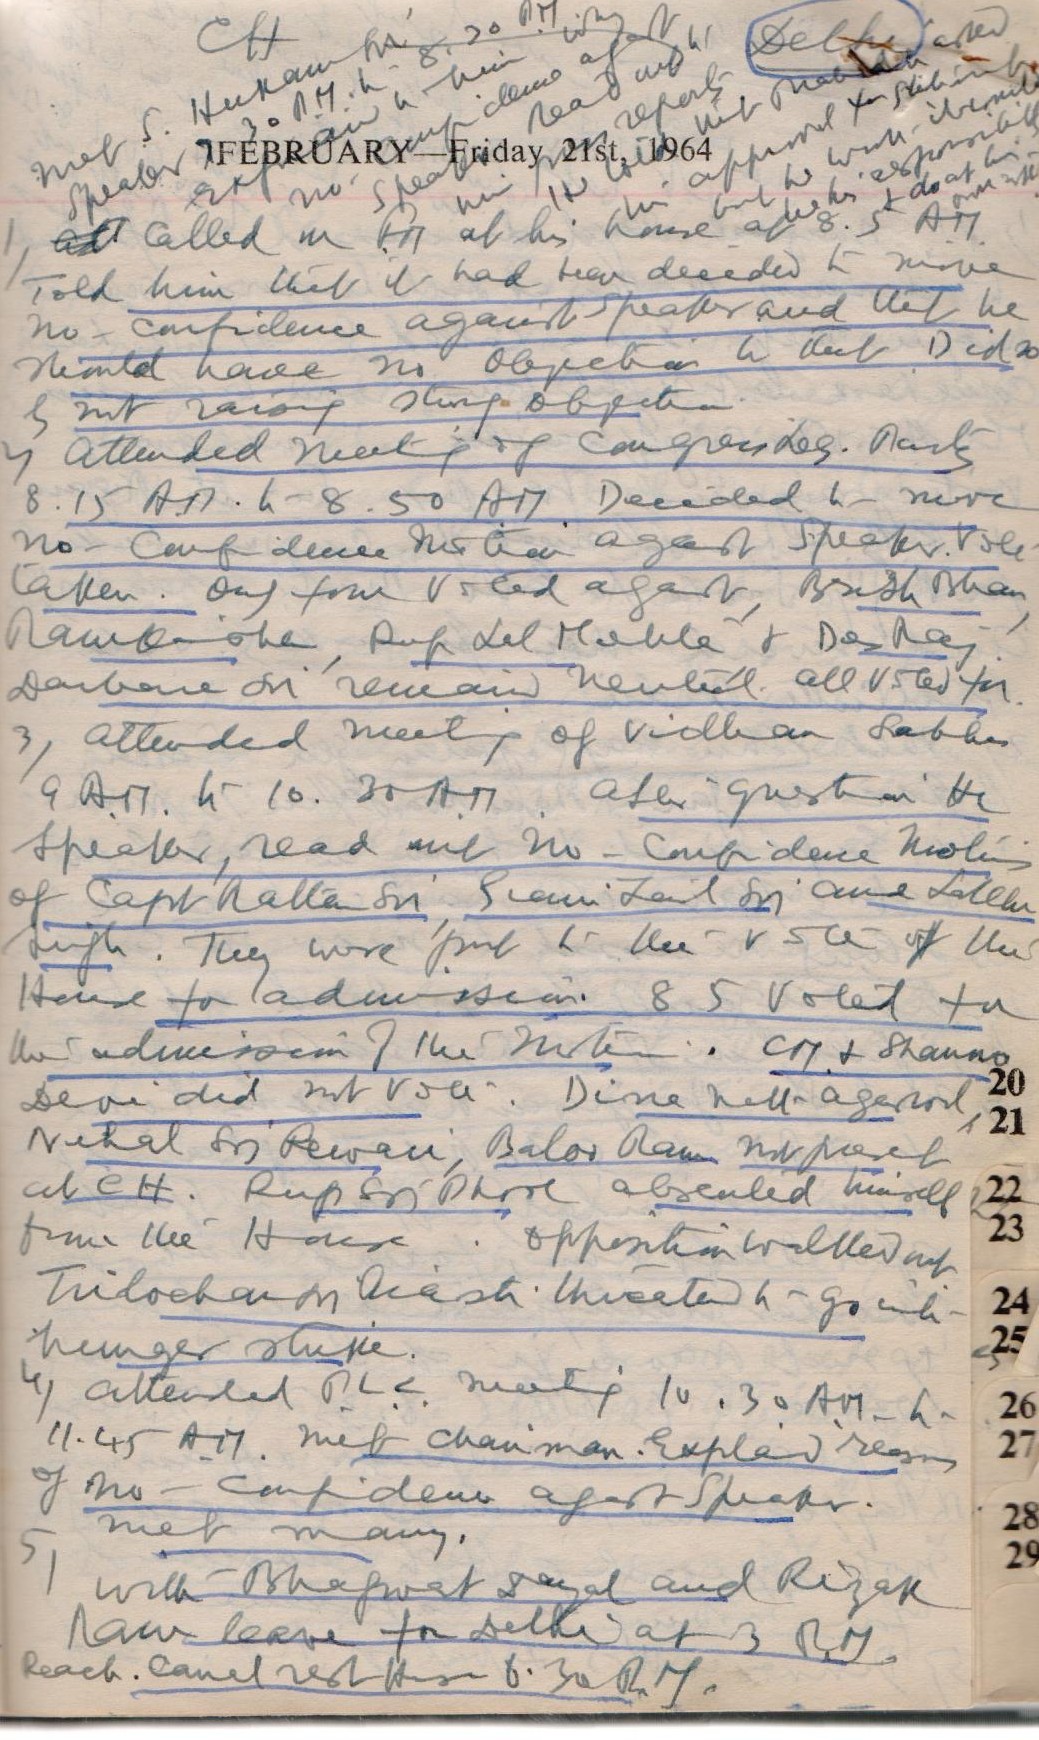 CH
Delhi
Met S. Hukam Sri 8.30 PM
Speaker 7.30 PM to
no-confidence against
Speaker read out
FEBRUARY—Friday 21st, 1964
1, Called on PM at his house at 8.5 AM
Told him that it had been decided to move
no-confidence against Speaker and that he
should have no objection to that Did so
by not raising strong objection
2, Attended meeting of Congress Leg. Party
8.15 AM. to 8.50 AM Decided to move
no-Confidence Motion against Speaker. Vote
taken. Only four voted against, Brish Bhan,
Ram Kishan, Rup Lal Mehta & Des Raj
Darbara Sri remained neutral. all voted for.
3, Attended meeting of Vidhan Sabha
9 AM. to 10.30 AM After question Hr
Speaker, read out No-Confidence Motions
of Capt Rattan Sri, Giani Zail Sri and Lallan
Singh. They were put to the vote of the
House for admission. 85 Voted for
the admission of the Motion. CM & Shanno
Devi did not vote. Dina Nath Agarwal,
Nihal Sri Rewari, Baloo Ram not present
at CH. Rup Sri Phool absented himself
from the House. Opposition walked out
Trilochan Sri Riasti threatened to go on
hunger strike.
4, Attended P.L.C. meeting 10.30 AM to
11.45 AM. Met Chairman. Explained reasons
of no-Confidence against Speaker.
5, Met many.
with Bhagwat Dayal and Rizak
Ram leave for Delhi at 3 P.M.
Reach. Canal rest House 6.30 P.M.
20
21
22
23
24
25
26
27
28
29